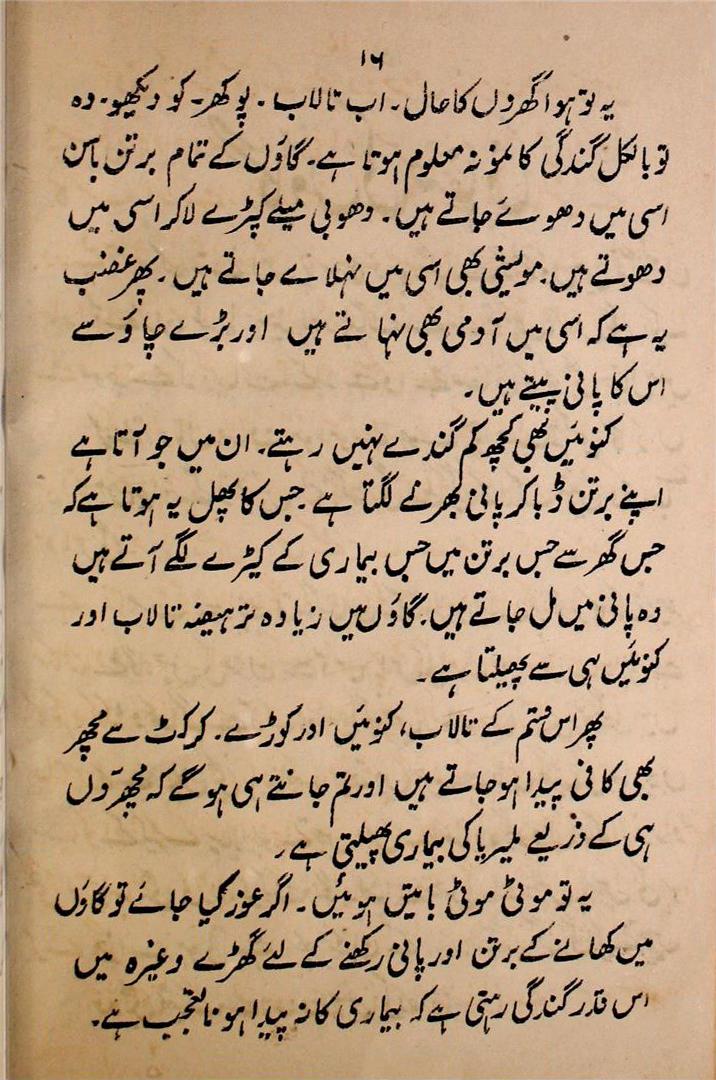 ۱۶
یہ تو ہوا گھروں کا حال۔ اب تالاب۔ پوکھر۔ کو دیکھو۔ وہ
تو بالکل گندگی کا نمونہ معلوم ہوتا ہے۔ گاؤں کے تمام برتن باسن
اسی میں دھوئے جاتے ہیں۔ دھوبی میلے کپڑے لاکر اسی میں
دھوتے ہیں۔ مویشی بھی اسی میں نہلائے جاتے ہیں۔ پھر غضب
یہ ہے کہ اسی میں آدمی بھی نہاتے ہیں اور بڑے چاؤ سے
اس کا پانی پیتے ہیں۔
کنوئیں بھی کچھ کم گندے نہیں رہتے۔ ان میں جو آتا ہے
اپنے برتن ڈباکر پانی بھرنے لگتا ہے جس کا پھل یہ ہوتا ہے کہ
جس گھر سے جس برتن میں جس بیماری کے کیڑے لگے آتے ہیں
وہ پانی میں مل جاتے ہیں۔ گاؤں میں زیادہ تر ہیضہ تالاب اور
کنوئیں ہی سے پھیلتا ہے۔
پھر اس قسم کے تالاب، کنوئیں اور کوڑے۔ کرکٹ سے مچھر
بھی کافی پیدا ہو جاتے ہیں اور تم جانتے ہی ہوگے کہ مچھروں
ہی کے ذریعے ملیریا کی بیماری پھیلتی ہے۔
یہ تو موٹی موٹی باتیں ہوئیں۔ اگر غور کیا جائے تو گاؤں
میں کھانے کے برتن اور پانی رکھنے کے لئے گھڑے وغیرہ میں
اس قدر گندگی رہتی ہے کہ بیماری کا نہ پیدا ہونا تعجب ہے۔